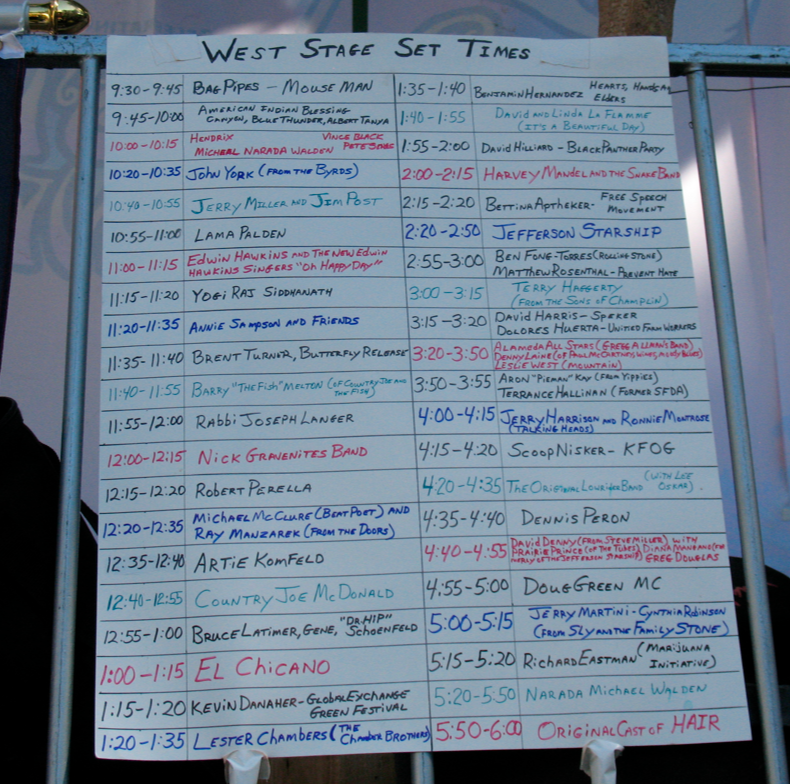 West Stage Set Times
9:30-9:45 Bag Pipes - Mouse Man
9:45-10:00 American Indian Blessing
Canyon, Blue Thunder, Albert Tanya
10:00-10:15 Hendrix Vince Black
Micheal Narada Walden Pete Sears
10:20-10:35 John York (From the Byrds)
10:40-10:55 Jerry Miller and Jim Post
10:55-11:00 Lama Palden
11:00-11:15 Edwin Hawkins and the New Edwin
Hawkins Singers "Oh Happy Day"
11:15-11:20 Yogi Raj Siddhanath
11:20-11:35 Annie Sampson and Friends
11:35-11:40 Brent Turner, Butterfly Release
11:40-11:55 Barry "The Fish" Melton (of Country Joe and
the Fish)
11:55-12:00 Rabbi Joseph Langer
12:00-12:15 Nick Gravenites Band
12:15-12:20 Robert Perella
12:20-12:35 Michael McClure (Beat Poet) and
Ray Manzarek (From the Doors)
12:35-12:40 Artie Kornfeld
12:40-12:55 Country Joe McDonald
12:55-1:00 Bruce Latimer, Gene, "Dr. Hip"
Schoenfeld
1:00-1:15 El Chicano
1:15-1:20 Kevin Danaher - Global Exchange
Green Festival
1:20-1:35 Lester Chambers (The
Chamber Brothers)
1:35-1:40 Benjamin Hernandez Hearts, Hands
Elders
1:40-1:55 David and Linda La Flamme
(It's a Beautiful Day)
1:55-2:00 David Hilliard - Black Panther Party
2:00-2:15 Harvey Mandel and the Snake Band
2:15-2:20 Bettina Aptheker- Free Speech
Movement
2:20-2:50 Jefferson Starship
2:55-3:00 Ben Fong-Torres (Rolling Stone)
Matthew Rosenthal - Prevent Hate
3:00-3:15 Terry Haggerty
(From the Sons of Champlin)
3:15-3:20 David Harris - Speker
Dolores Huerta - United Farm Workers
3:20-3:50 Alameda All Stars (Gregg Allman's Band)
Denny Laine (of Paul McCartney, Wings, Moody Blues)
Leslie West (Mountain)
3:50-3:55 Aron "Pieman" Kay (From Yippies)
Terrance Hallinan (Former SFDA)
4:00-4:15 Jerry Harrison and Ronnie Montrose
(Talking Heads)
4:15-4:20 Scoop Nisker - KFOG
4:20-4:35 The Original Lowrider Band (with Lee
Oskar).
4:35-4:40 Dennis Peron
4:40-4:55 David Denny (From Steve Miller) with
Prairie Prince (of the Tubes), Diana Mangano (
of the Jefferson Starship) Greg Douglas
4:55-5:00 Doug Green MC
5:00-5:15 Jerry Martini - Cynthia Robinson
(From Sly and the Family Stone)
5:15-5:20 Richard Eastman (Marijuana
Initiative)
5:20-5:50 Narada Michael Walden
5:50-6:00 Original Cast of HAIR